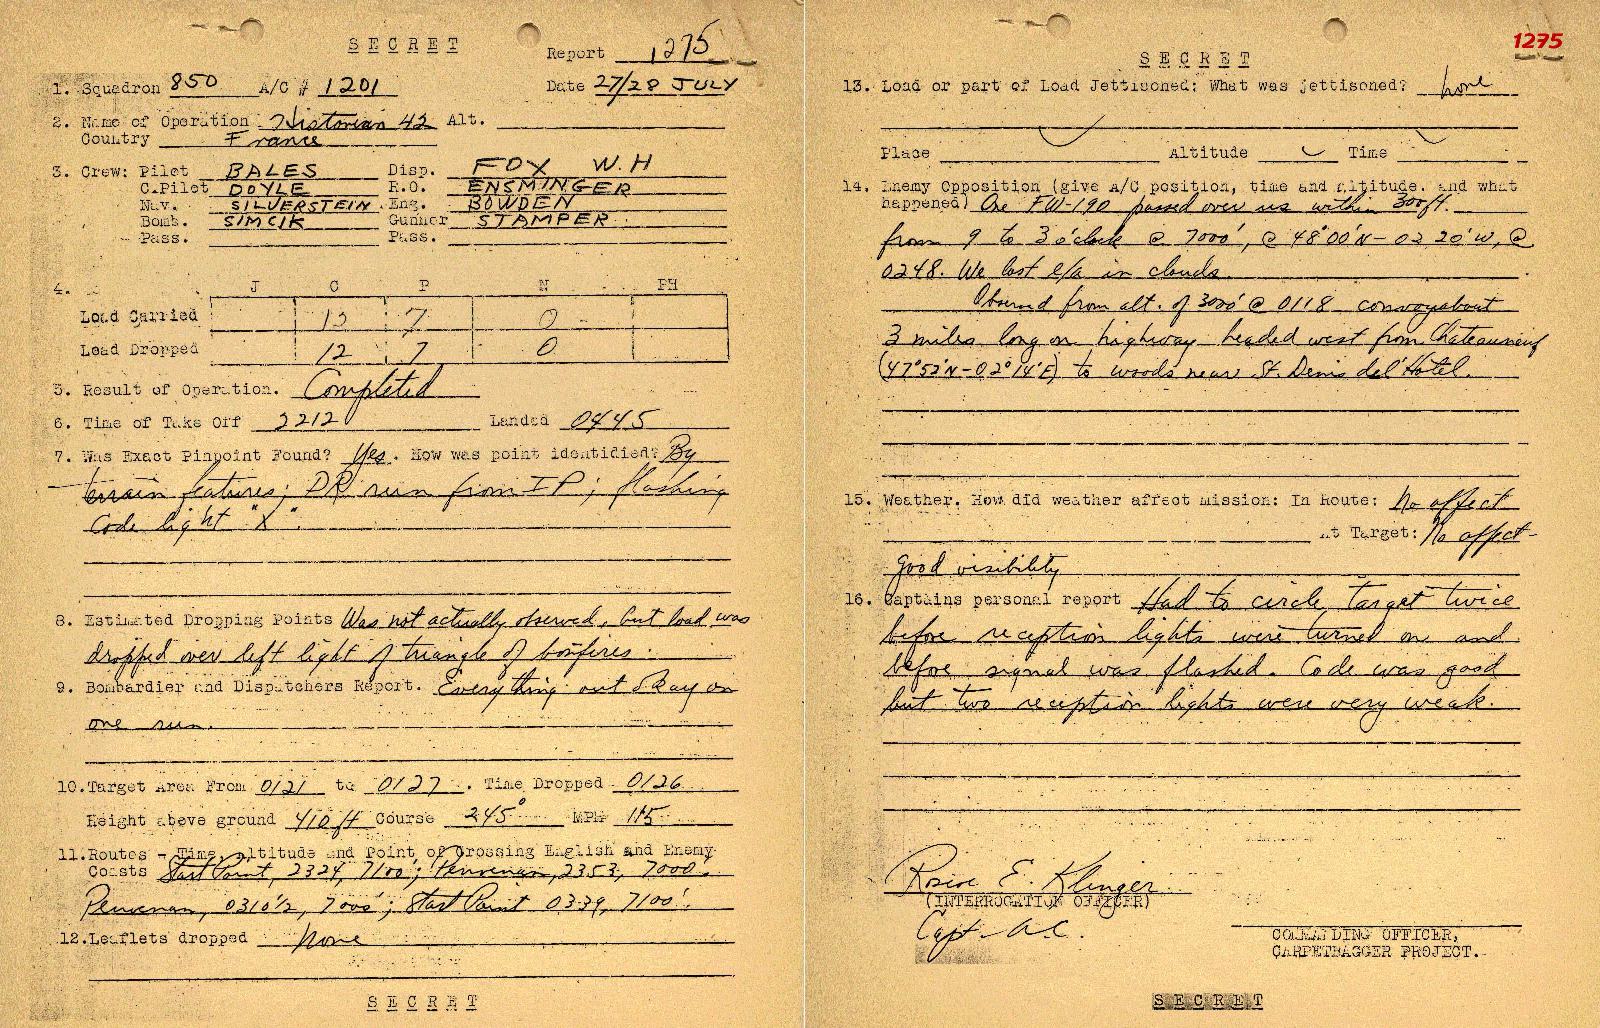 SECRET
Report 1275
1. Squadron 850 A/C # 1201 Date 27/28 JULY
2. Name of Operation Historian 42 Alt.
Country France
3. Crew: Pilot BALES Disp. FOX W.H
C.Pilot DOYLE R.O. ENSMINGER
Nav. SILVERSTEIN Eng. BOWDEN
Bomb. SIMCIK Gunner STAMPER
Pass. Pass.
4. J C P N PH
Load Carried 12 7 0
Load Dropped 12 7 0
5. Result of Operation. Completed
6. Time of Take Off 2212 Landed 0445
7. Was Exact Pinpoint Found? Yes. How was point identidied? By
terrain features; DR run from IP; flashing
Code light "X".
8. Estimated Dropping Points Was not actually observed, but load was
dropped over left light of triangle of bonfires.
9. Bombardier and Dispatchers Report. Everything out Okay on
one run.
10. Target Area From 0121 to 0127. Time Dropped 0126
Height above ground 410 ft Course 245° MPH 115
11. Routes - Time, altitude and Point of Crossing English and Enemy
Coasts Start Point, 2324, 7100'; Penvenan, 2353, 7000'.
Penvenan, 0310½, 7000'; Start Point 0339, 7100'.
12. Leaflets dropped None
SECRET
1275
SECRET
13. Load or part of Load Jettisoned: What was jettisoned? None
Place Altitude Time
14. Enemy Opposition (give A/C position, time and altitude. and what
happened) One FW-190 passed over us within 300 ft.
from 9 to 3 o'clock @ 7000', @ 48°00'N - 02 20'W, @
0248. We lost e/a in clouds.
Observed from alt. of 3000' @ 0118 convoy about
3 miles long on highway headed west from Chateauneuf
(47°52'N-02°14'E) to woods near St. Denis del'Hotel.
15. Weather. How did weather affect mission: In Route: No affect
At Target: No affect-
good visibility
16. Captains personal report Had to circle target twice
before reception lights were turned on and
before signal was flashed. Code was good
but two reception lights were very weak.
E. Klinger
(INTERROGATION OFFICER)
Capt. A.C.
COMMANDING OFFICER,
CARPETBAGGER PROJECT.
SECRET